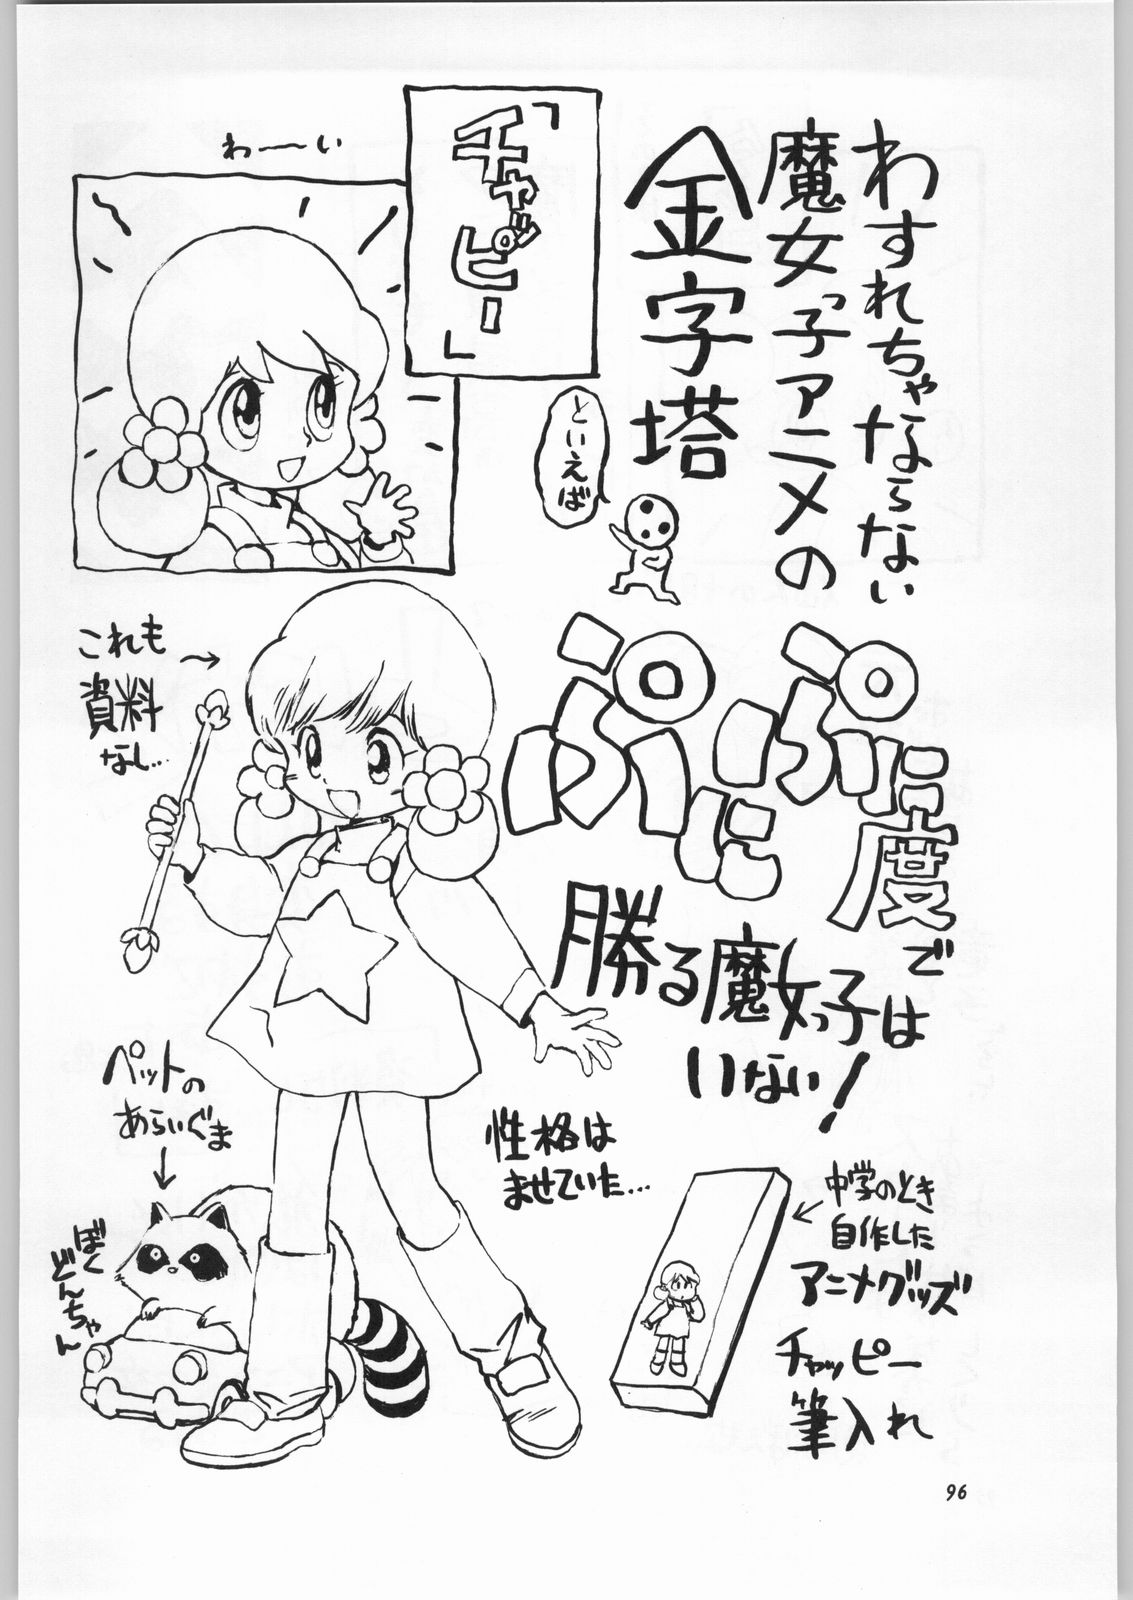 わすれちゃならない
魔女っ子アニメの
金字塔
といえば
「チャッピー」
わーい
ぷにぷに度で
勝る魔女っ子は
いない!
これも
資料
なし…
ペットの
あらいぐま
ぼく
どんちゃん
性格は
ませていた…
中学のとき
自作した
アニメグッズ
チャッピー
筆入れ
96